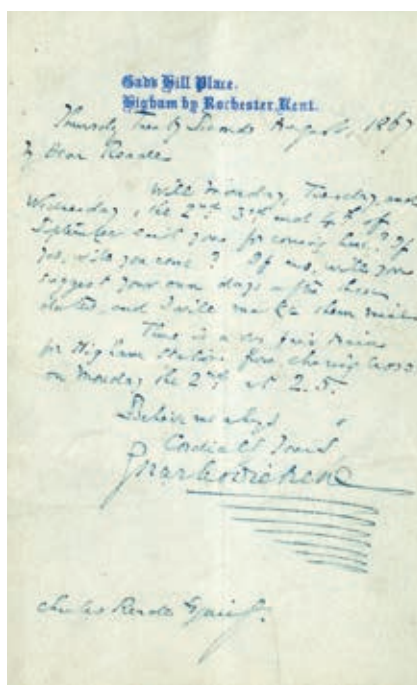 Gad's Hill Place,
Higham by Rochester, Kent.
Thursday Twenty Second August, 1867
My Dear Reade
Will Monday, Tuesday and
Wednesday, the 2nd 3rd and 4th of
September suit you for coming here? If
yes, will you come? If no, will you
suggest your own days after those
dates, and I will make them mine
There is a very good train
for Higham Station from Charing Cross
on Monday the 2nd at 2.5.
Believe me always
Cordially Yours
Charles Dickens
Charles Reade Esquire.